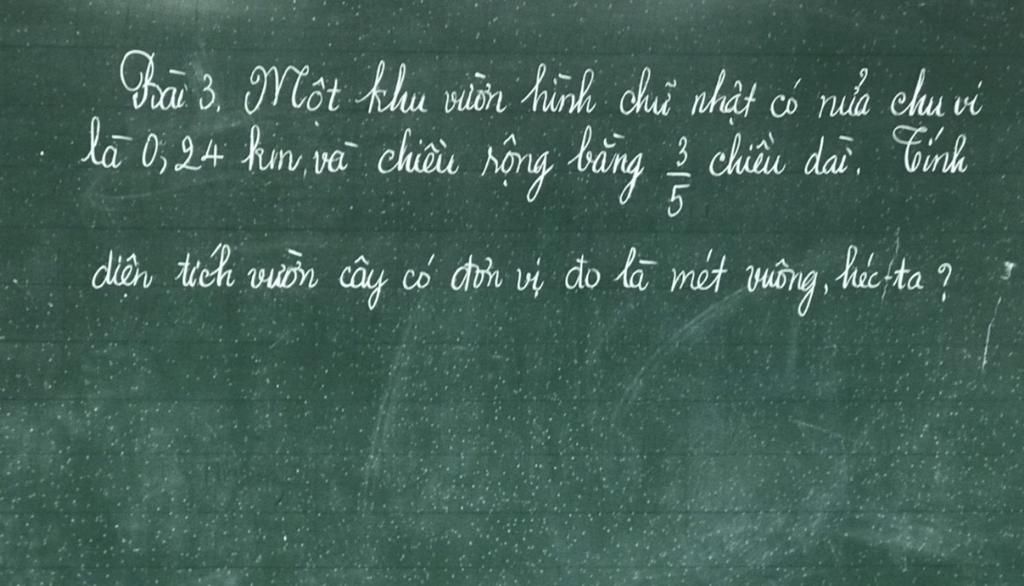 Bài 3. Một khu vườn hình chữ nhật có nửa chu vi
là 0,24 km, và chiều rộng bằng 3/5 chiều dài. Tính
diện tích vườn cây có đơn vị đo là mét vuông, héc-ta?